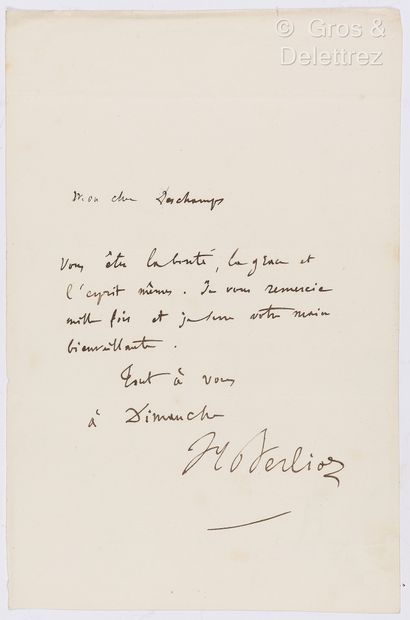 © Gros &
Delettrez
Mon cher Deschamps
Vous êtes la bonté, la grace et
l'esprit mêmes. Je vous remercie
mille fois et je serre votre main
bienveillante.
Tout à vous
à Dimanche
H Berlioz